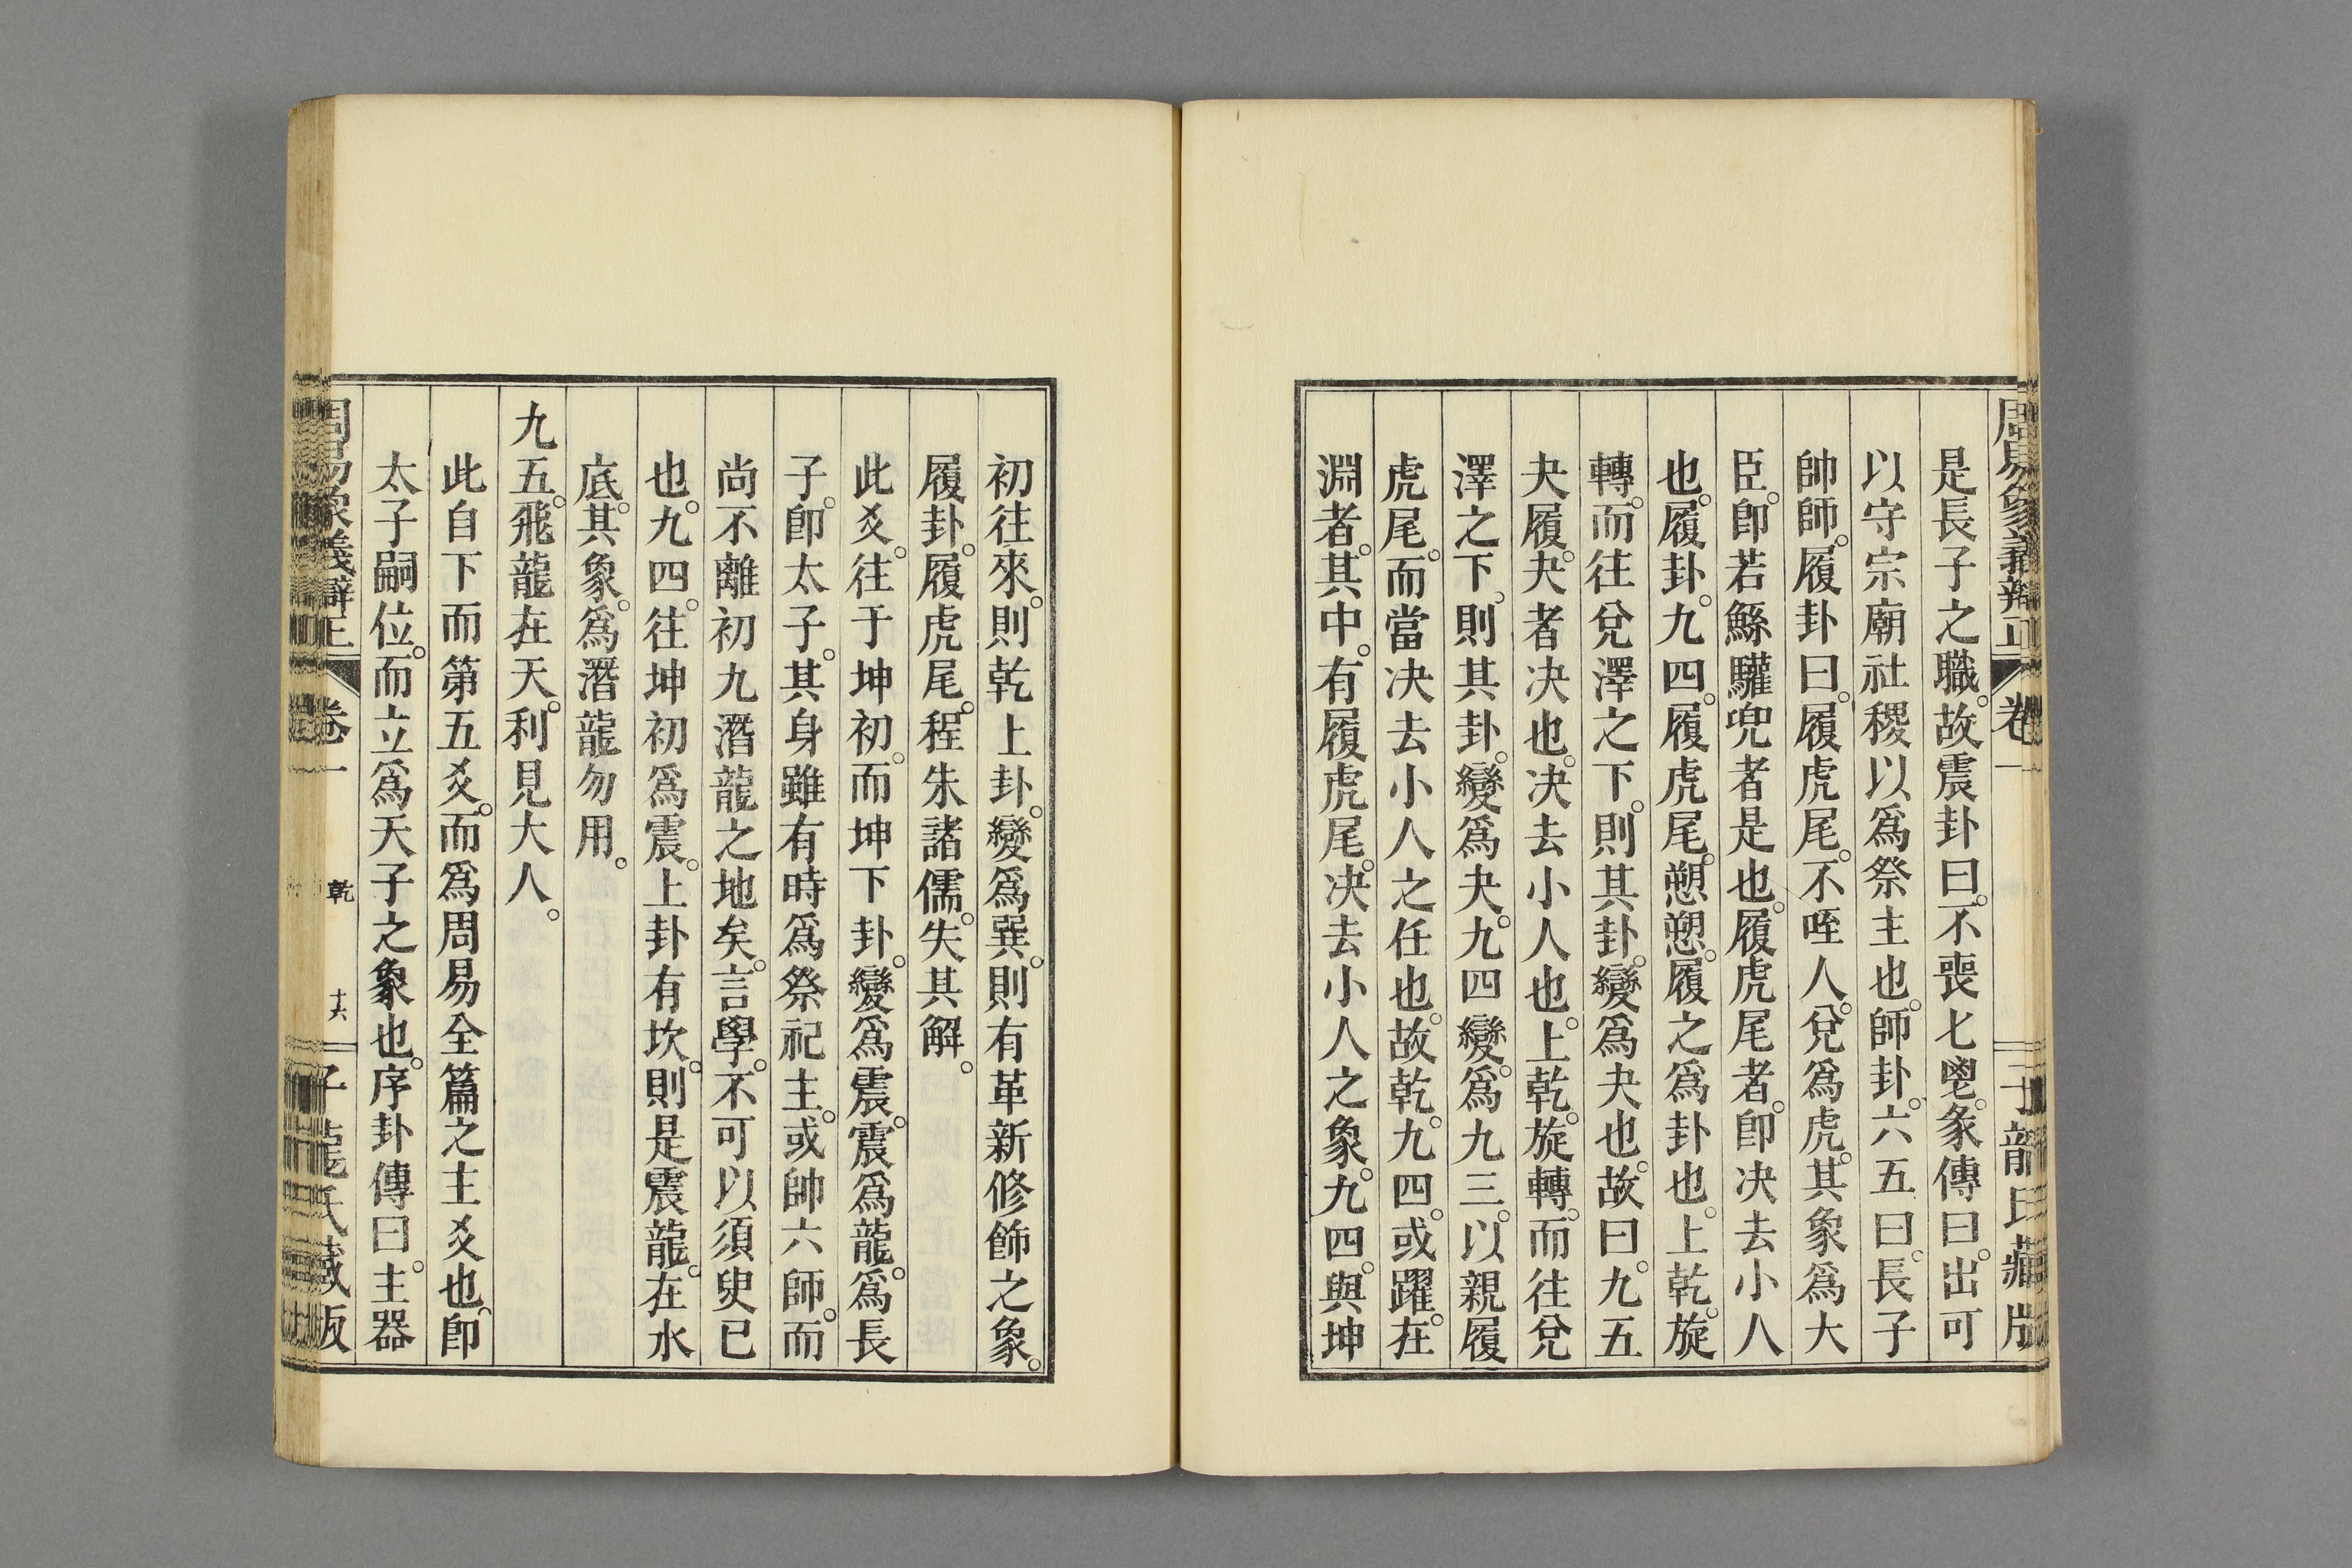 周易象義辯正 卷一 子龍氏藏版
是長子之職。故震卦曰。不喪匕鬯。彖傳曰。出可
以守宗廟社稷以爲祭主也。師卦。六五曰。長子
帥師。履卦曰。履虎尾。不咥人。兌爲虎。其象爲大
臣。卽若鯀驩兜者是也。履虎尾者。卽决去小人
也。履卦。九四。履虎尾。愬愬。履之爲卦也。上乾。旋
轉。而往兌澤之下。則其卦。變爲夬也。故曰。九五
夬履。夬者决也。决去小人也。上乾。旋轉。而往兌
澤之下。則其卦。變爲夬。九四變。爲九三。以親履
虎尾。而當决去小人之任也。故乾。九四。或躍。在
淵者。其中。有履虎尾。决去小人之象。九四。與坤
初往來。則乾上卦。變爲巽。則有革新修飾之象。
履卦。履虎尾。程朱諸儒。失其解。
此爻。往于坤初。而坤下卦。變爲震。震爲龍。爲長
子。卽太子。其身雖有時爲祭祀主。或帥六師。而
尚不離初九潛龍之地矣。言學。不可以須臾已
也。九四。往坤初爲震。上卦有坎。則是震龍。在水
底。其象。爲潛龍勿用。
九五。飛龍在天。利見大人。
此自下而第五爻。而爲周易全篇之主爻也。卽
太子嗣位。而立爲天子之象也。序卦傳曰。主器
周易象義辯正 卷一 乾 十六 子龍氏藏版